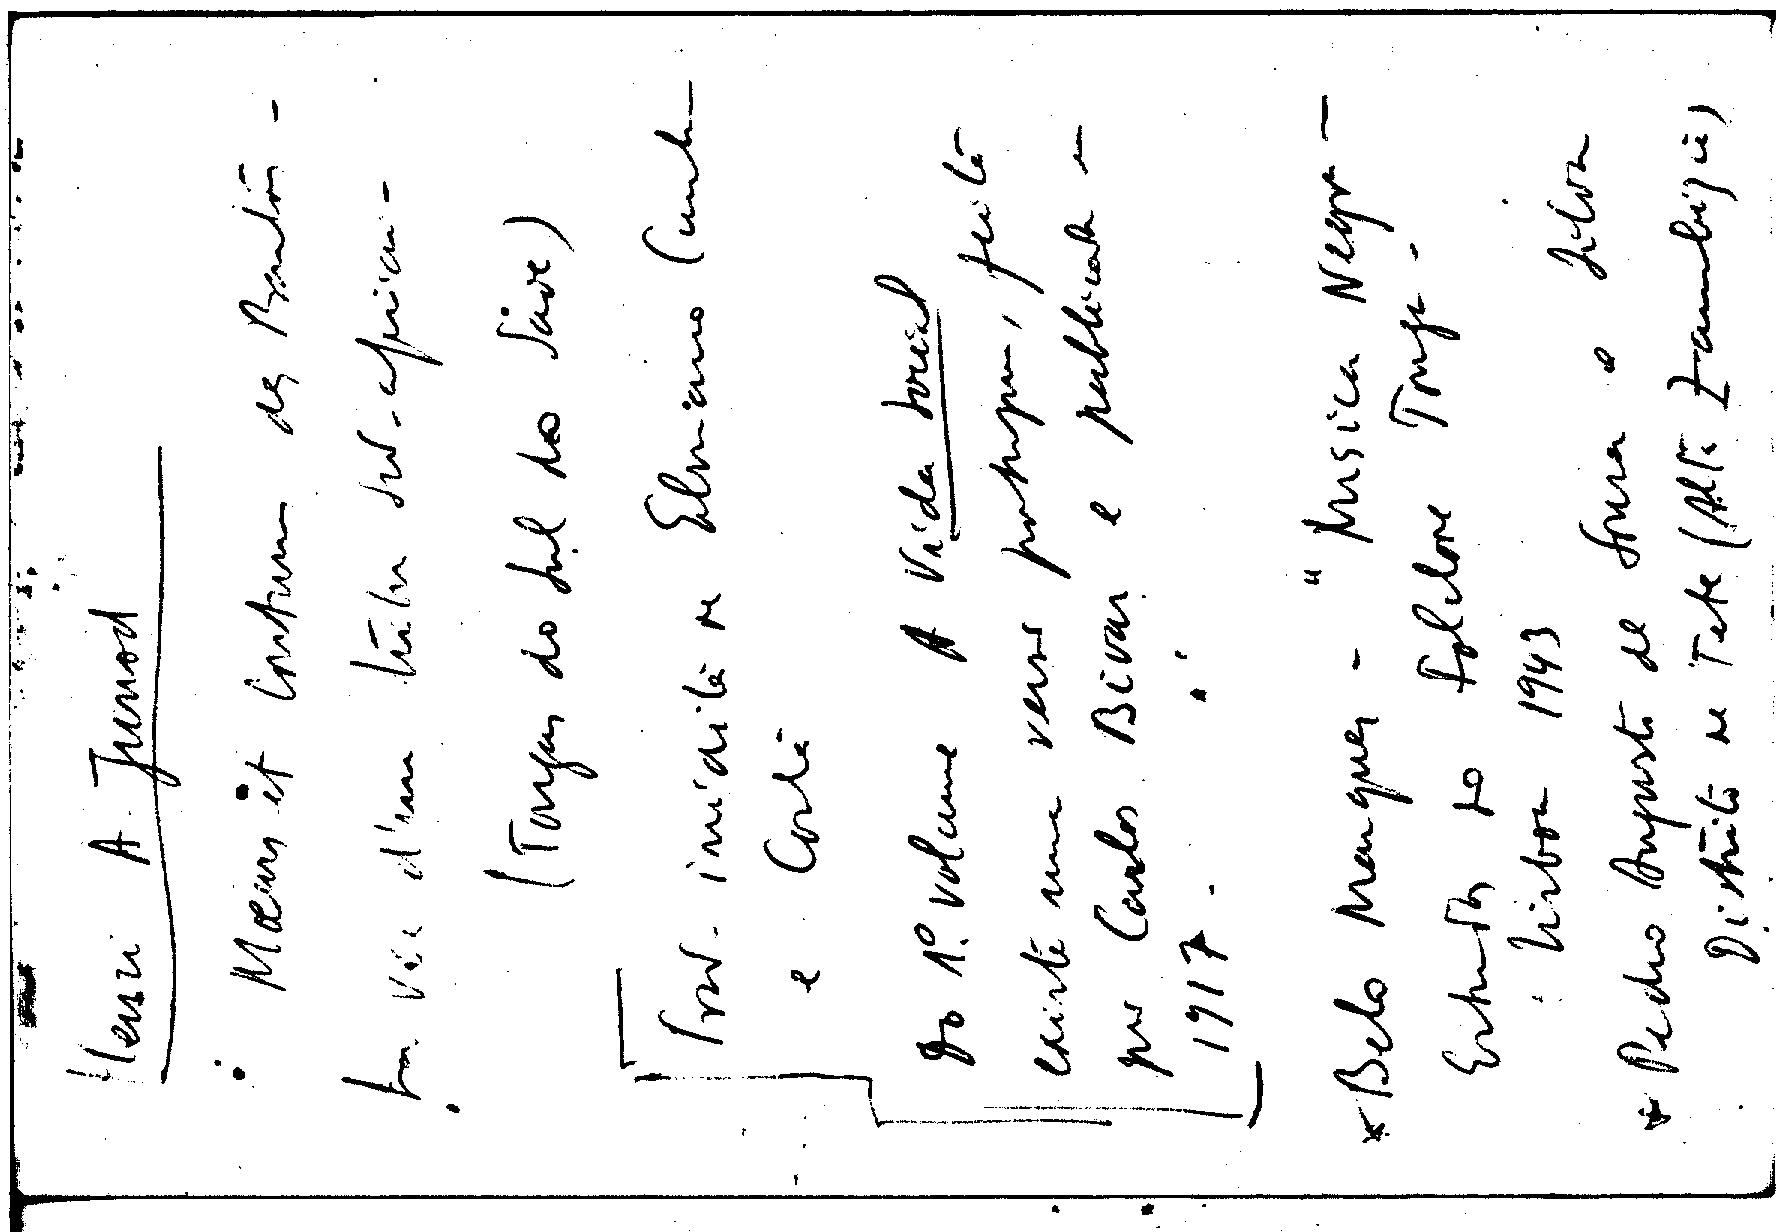 Henri A. Junod
Mœurs et Coutumes des Bantous -
La vie d'une tribu sud-africaine -
(Tongas do Sul do Save)
Trad. inédita de Elmiano Cunha
e Costa
Do 1º volume A Vida Social
existe uma versão portuguesa, feita
por Carlos Bivar e publicada em
1917 -
* Belo Marques - "Musica Negra -
Estudos do folclore Tonga -
Lisboa 1943
* Pedro Augusto de Sousa e Silva
Distrito de Tete (Alta Zambezia)